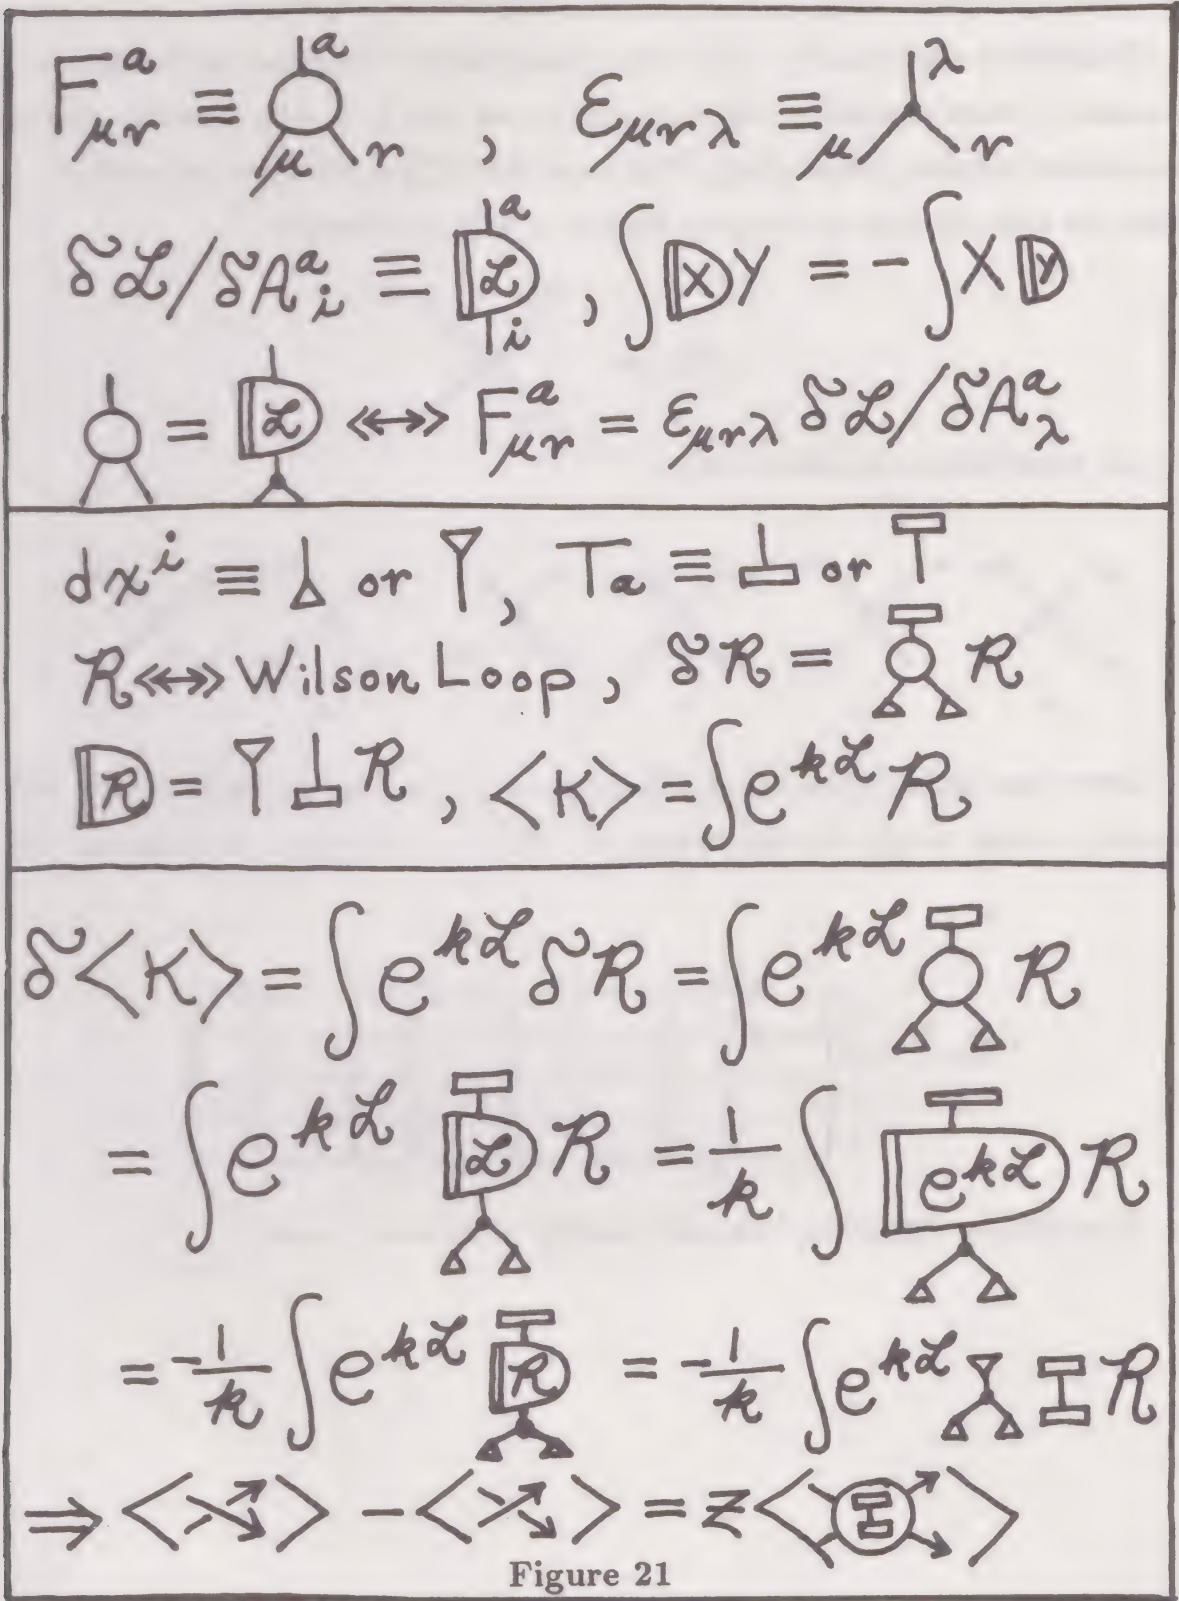 F^a_{μν} ≡ a μ ν , ε_{μνλ} ≡ μ λ ν
δℒ/δA^a_i ≡ a ℒ i , ∫ X Y = - ∫ X Y
= ℒ ⟺ F^a_{μν} = ε_{μνλ} δℒ/δA^a_λ
dx^i ≡ or , T_a ≡ or
R ⟺ Wilson Loop, δR = R
R = R , <K> = ∫ e^{kℒ} R
δ<K> = ∫ e^{kℒ} δR = ∫ e^{kℒ} R
= ∫ e^{kℒ} ℒ R = 1/k ∫ e^{kℒ} R
= -1/k ∫ e^{kℒ} R = -1/k ∫ e^{kℒ} R
⇒ < > - < > = z < >
Figure 21